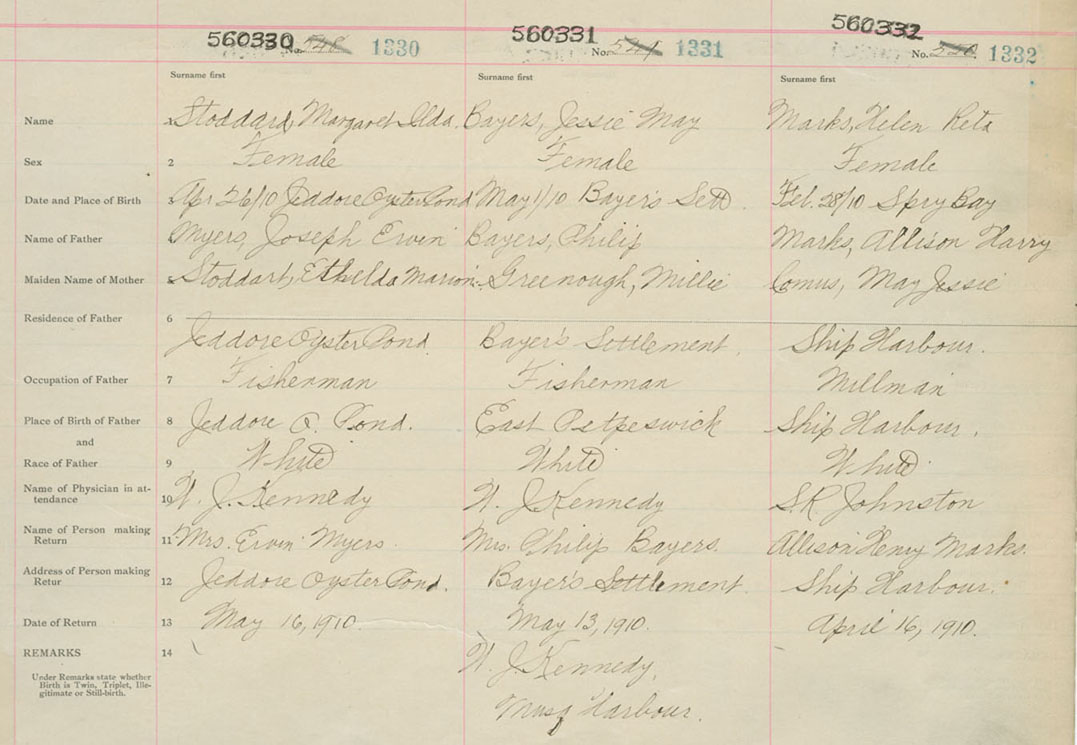 560330 No. 548 1330 560331 No. 549 1331 560332 No. 550 1332
Surname first Surname first Surname first
Name 1 Stoddard, Margaret Ilda. Bayers, Jessie May Marks, Helen Reta
Sex 2 Female Female Female
Date and Place of Birth 3 Apr 26/10 Jeddore Oyster Pond May 1/10 Bayer's Sett. Feb. 28/10 Spry Bay
Name of Father 4 Myers, Joseph Ervin Bayers, Philip Marks, Allison Harry
Maiden Name of Mother 5 Stoddart, Ethelda Marion. Greenough, Millie Comus, May Jessie
Residence of Father 6
Jeddore Oyster Pond. Bayer's Settlement. Ship Harbour.
Occupation of Father 7 Fisherman Fisherman Millman
Place of Birth of Father 8 Jeddore O. Pond. East Petpeswick Ship Harbour.
and
Race of Father 9 White White White
Name of Physician in at-
tendance 10 W. J. Kennedy W. J. Kennedy S.R. Johnston
Name of Person making
Return 11 Mrs. Ervin Myers. Mrs. Philip Bayers. Allison Henry Marks.
Address of Person making
Retur 12 Jeddore Oyster Pond. Bayer's Settlement. Ship Harbour.
Date of Return 13 May 16, 1910. May 13, 1910. April 16, 1910.
REMARKS 14
W. J. Kennedy,
Under Remarks state whether
Birth is Twin, Triplet, Ille-
gitimate or Still-birth.
Musq Harbour.